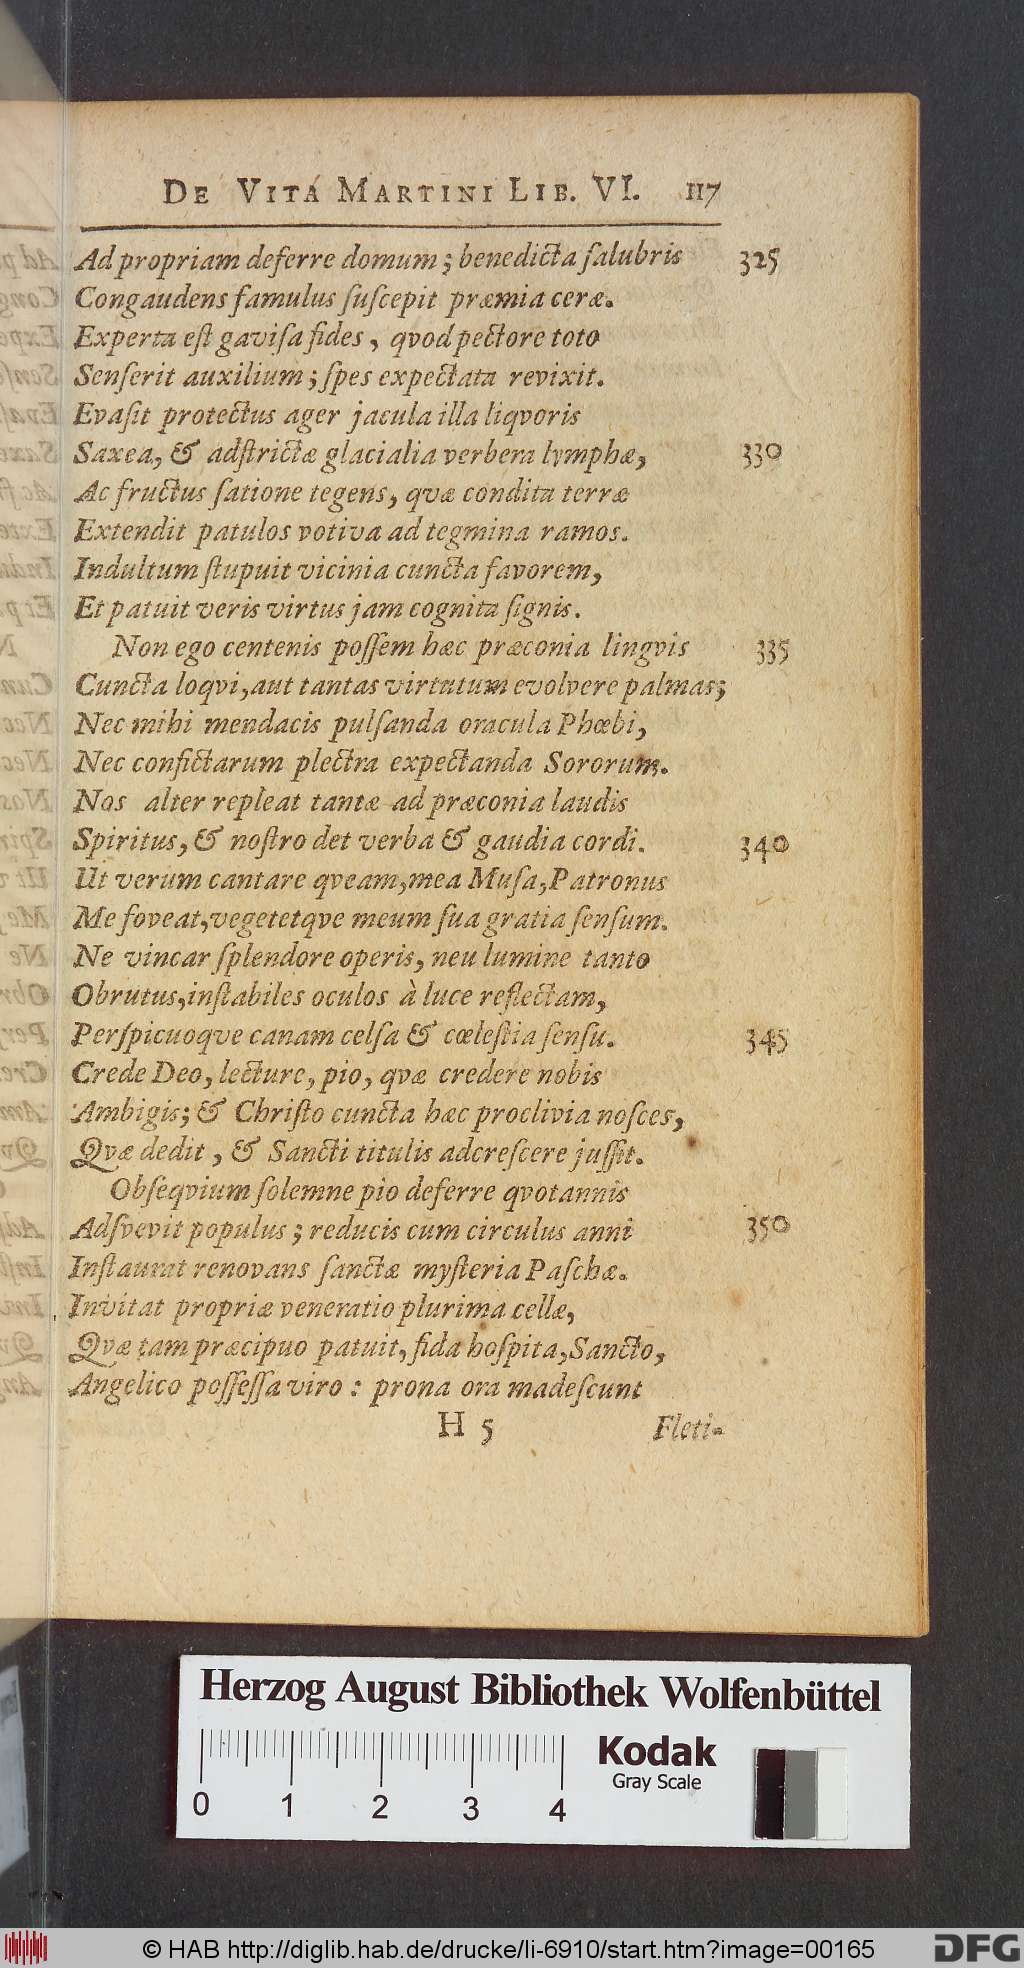 DE VITA MARTINI LIB. VI. 117
Ad propriam deferre domum; benedicta ſalubris 325
Congaudens famulus ſuſcepit præmia ceræ.
Experta eſt gaviſa fides, qvod pectore toto
Senſerit auxilium; ſpes expectata revixit.
Evaſit protectus ager jacula illa liqvoris
Saxea, & adſtrictæ glacialia verbera lymphæ, 330
Ac fructus ſatione tegens, qvæ condita terræ
Extendit patulos votiva ad tegmina ramos.
Indultum ſtupuit vicinia cuncta favorem,
Et patuit veris virtus jam cognita ſignis.
Non ego centenis poſſem hæc præconia lingvis 335
Cuncta loqvi, aut tantas virtutum evolvere palmas;
Nec mihi mendacis pulſanda oracula Phœbi,
Nec confictarum plectra expectanda Sororum.
Nos alter repleat tantæ ad præconia laudis
Spiritus, & noſtro det verba & gaudia cordi. 340
Ut verum cantare qveam, mea Muſa, Patronus
Me foveat, vegetetqve meum ſua gratia ſenſum.
Ne vincar ſplendore operis, neu lumine tanto
Obrutus, inſtabiles oculos à luce reflectam,
Perſpicuoqve canam celſa & cœleſtia ſenſu. 345
Crede Deo, lecture, pio, qvæ credere nobis
Ambigis; & Chriſto cuncta hæc proclivia noſces,
Qvæ dedit, & Sancti titulis adcreſcere juſſit.
Obſeqvium ſolemne pio deferre qvotannis
Adſvevit populus; reducis cum circulus anni 350
Inſtaurat renovans ſanctæ myſteria Paſchæ.
Invitat propriæ veneratio plurima cellæ,
Qvæ tam præcipuo patuit, fida hoſpita, Sancto,
Angelico poſſeſſa viro: prona ora madeſcunt
H 5 Fleti-
Herzog August Bibliothek Wolfenbüttel
Kodak
Gray Scale
0 1 2 3 4
© HAB http://diglib.hab.de/drucke/li-6910/start.htm?image=00165
DFG